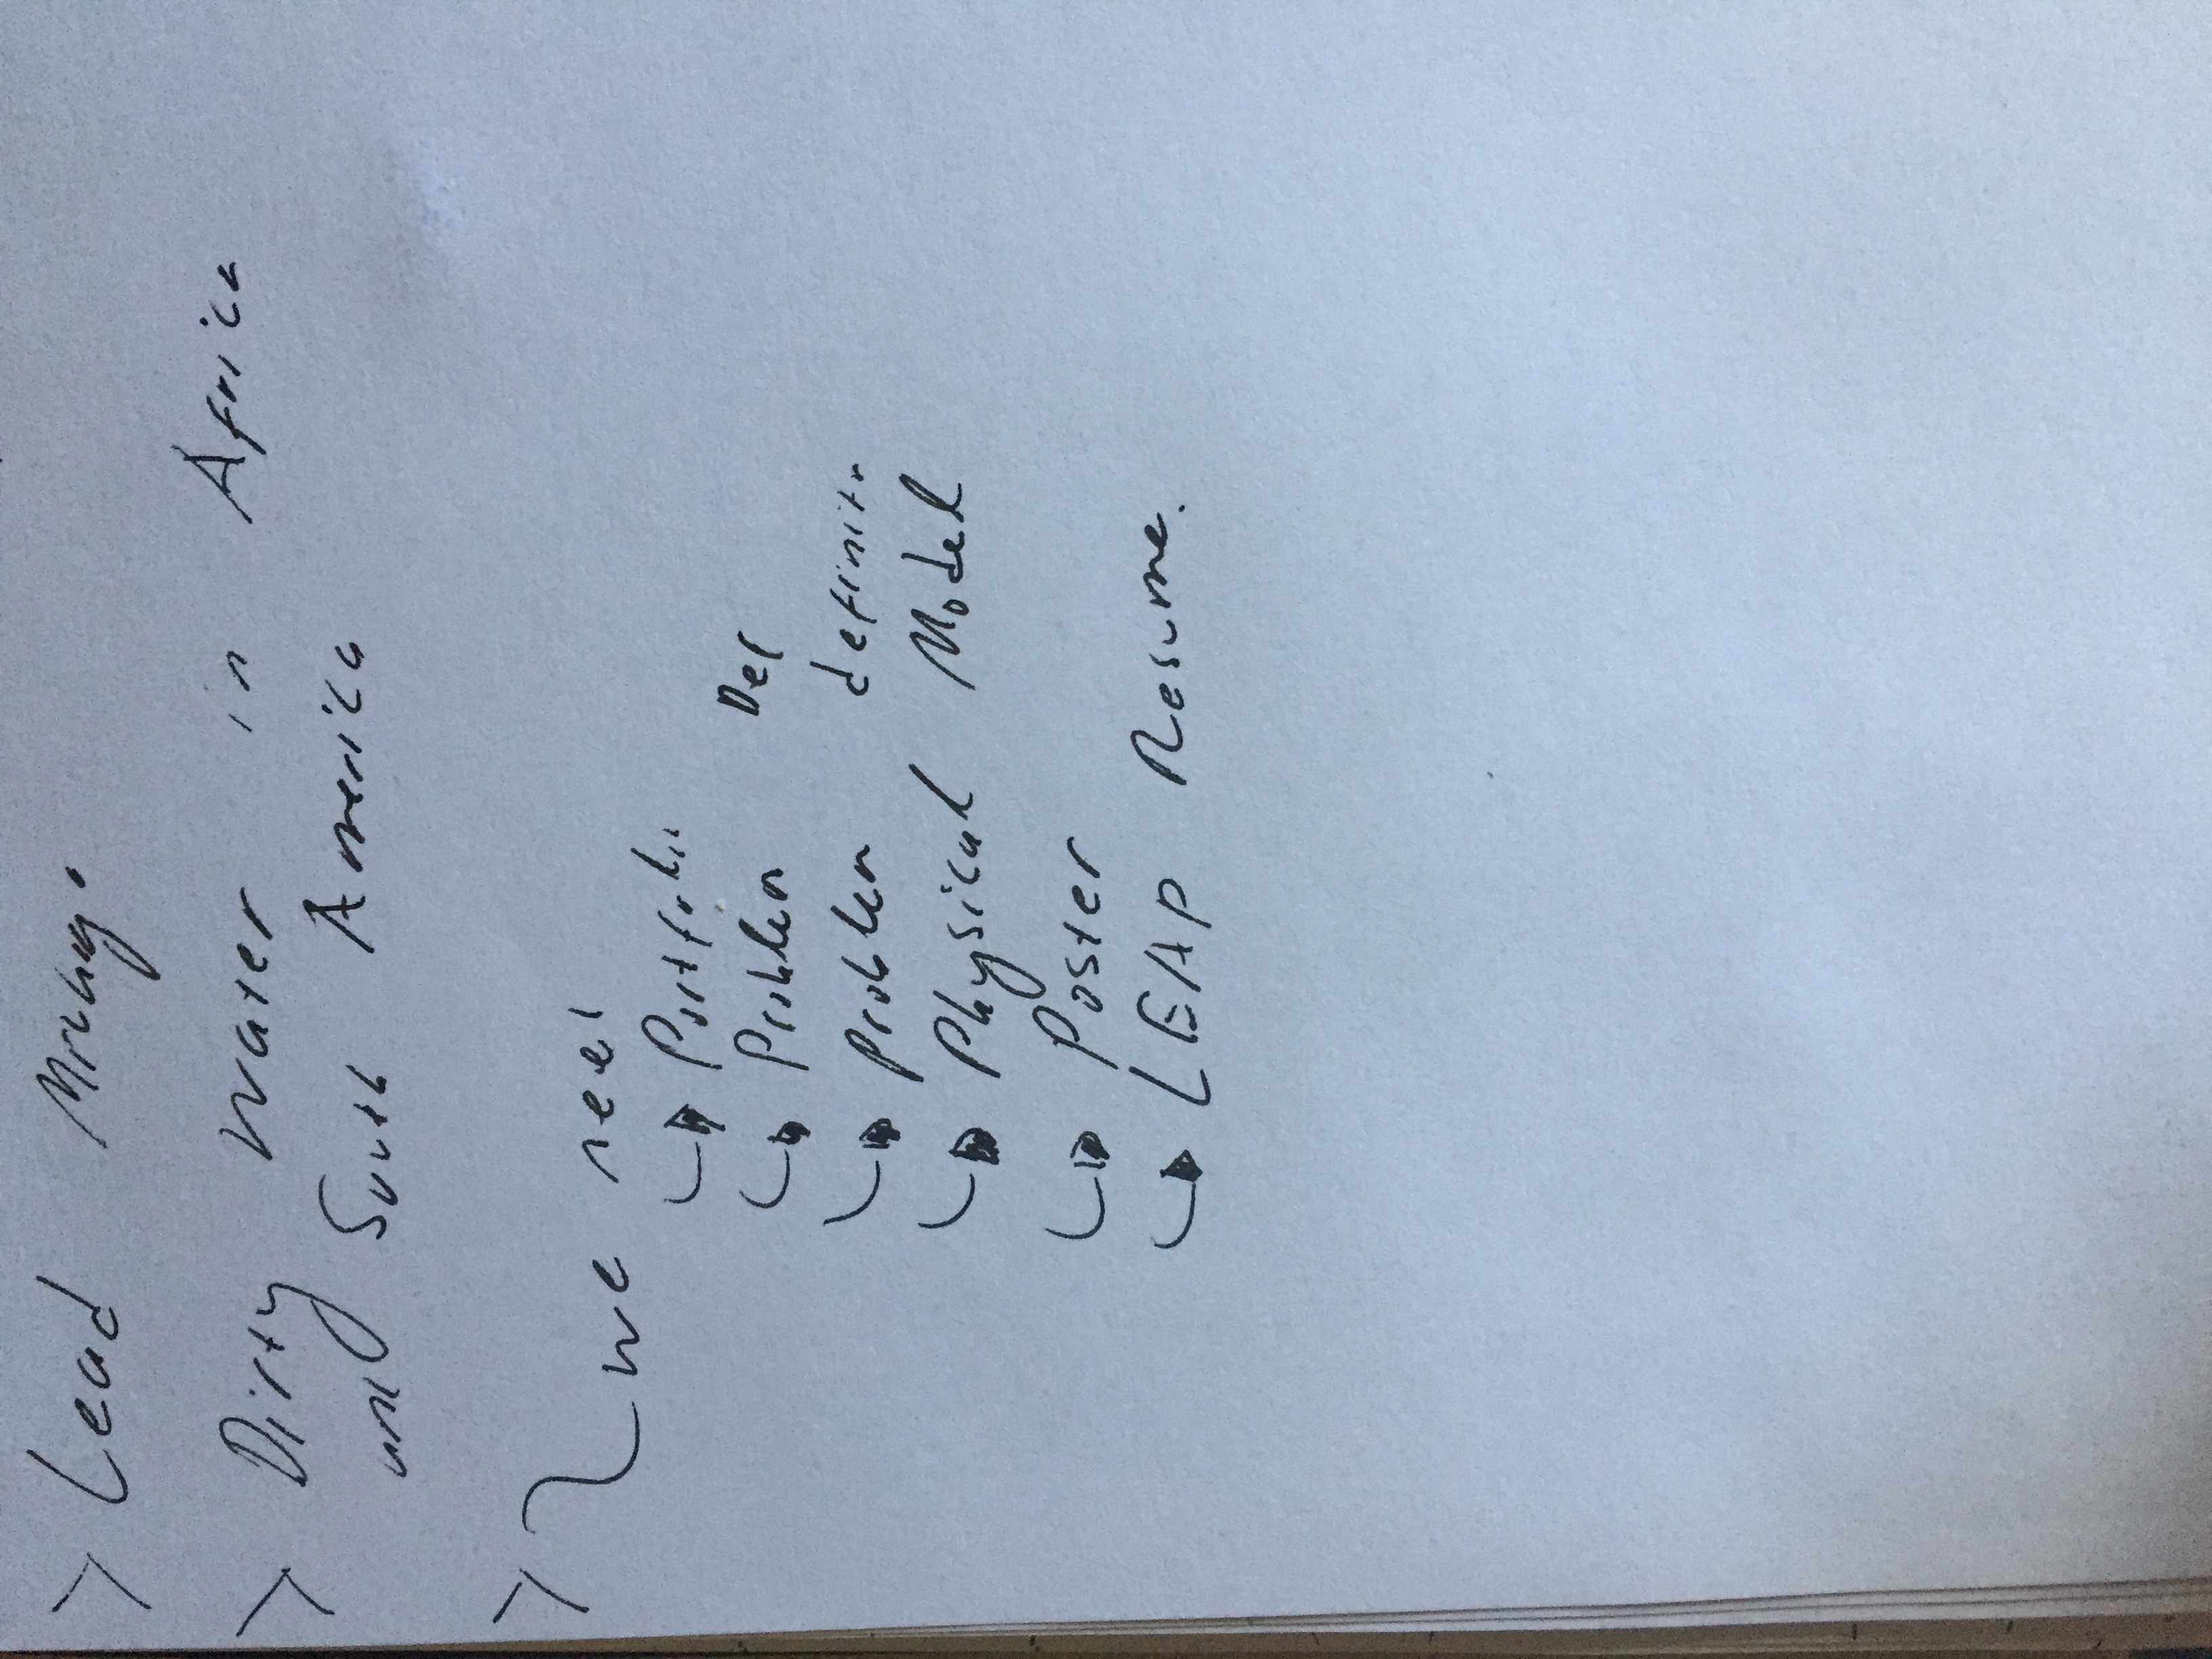 > Lead
> Dirty water in Africa
and South America
>
we need
Portfolio
Problem Def
problem definitn
Physical Model
Poster
LEAP Resume.